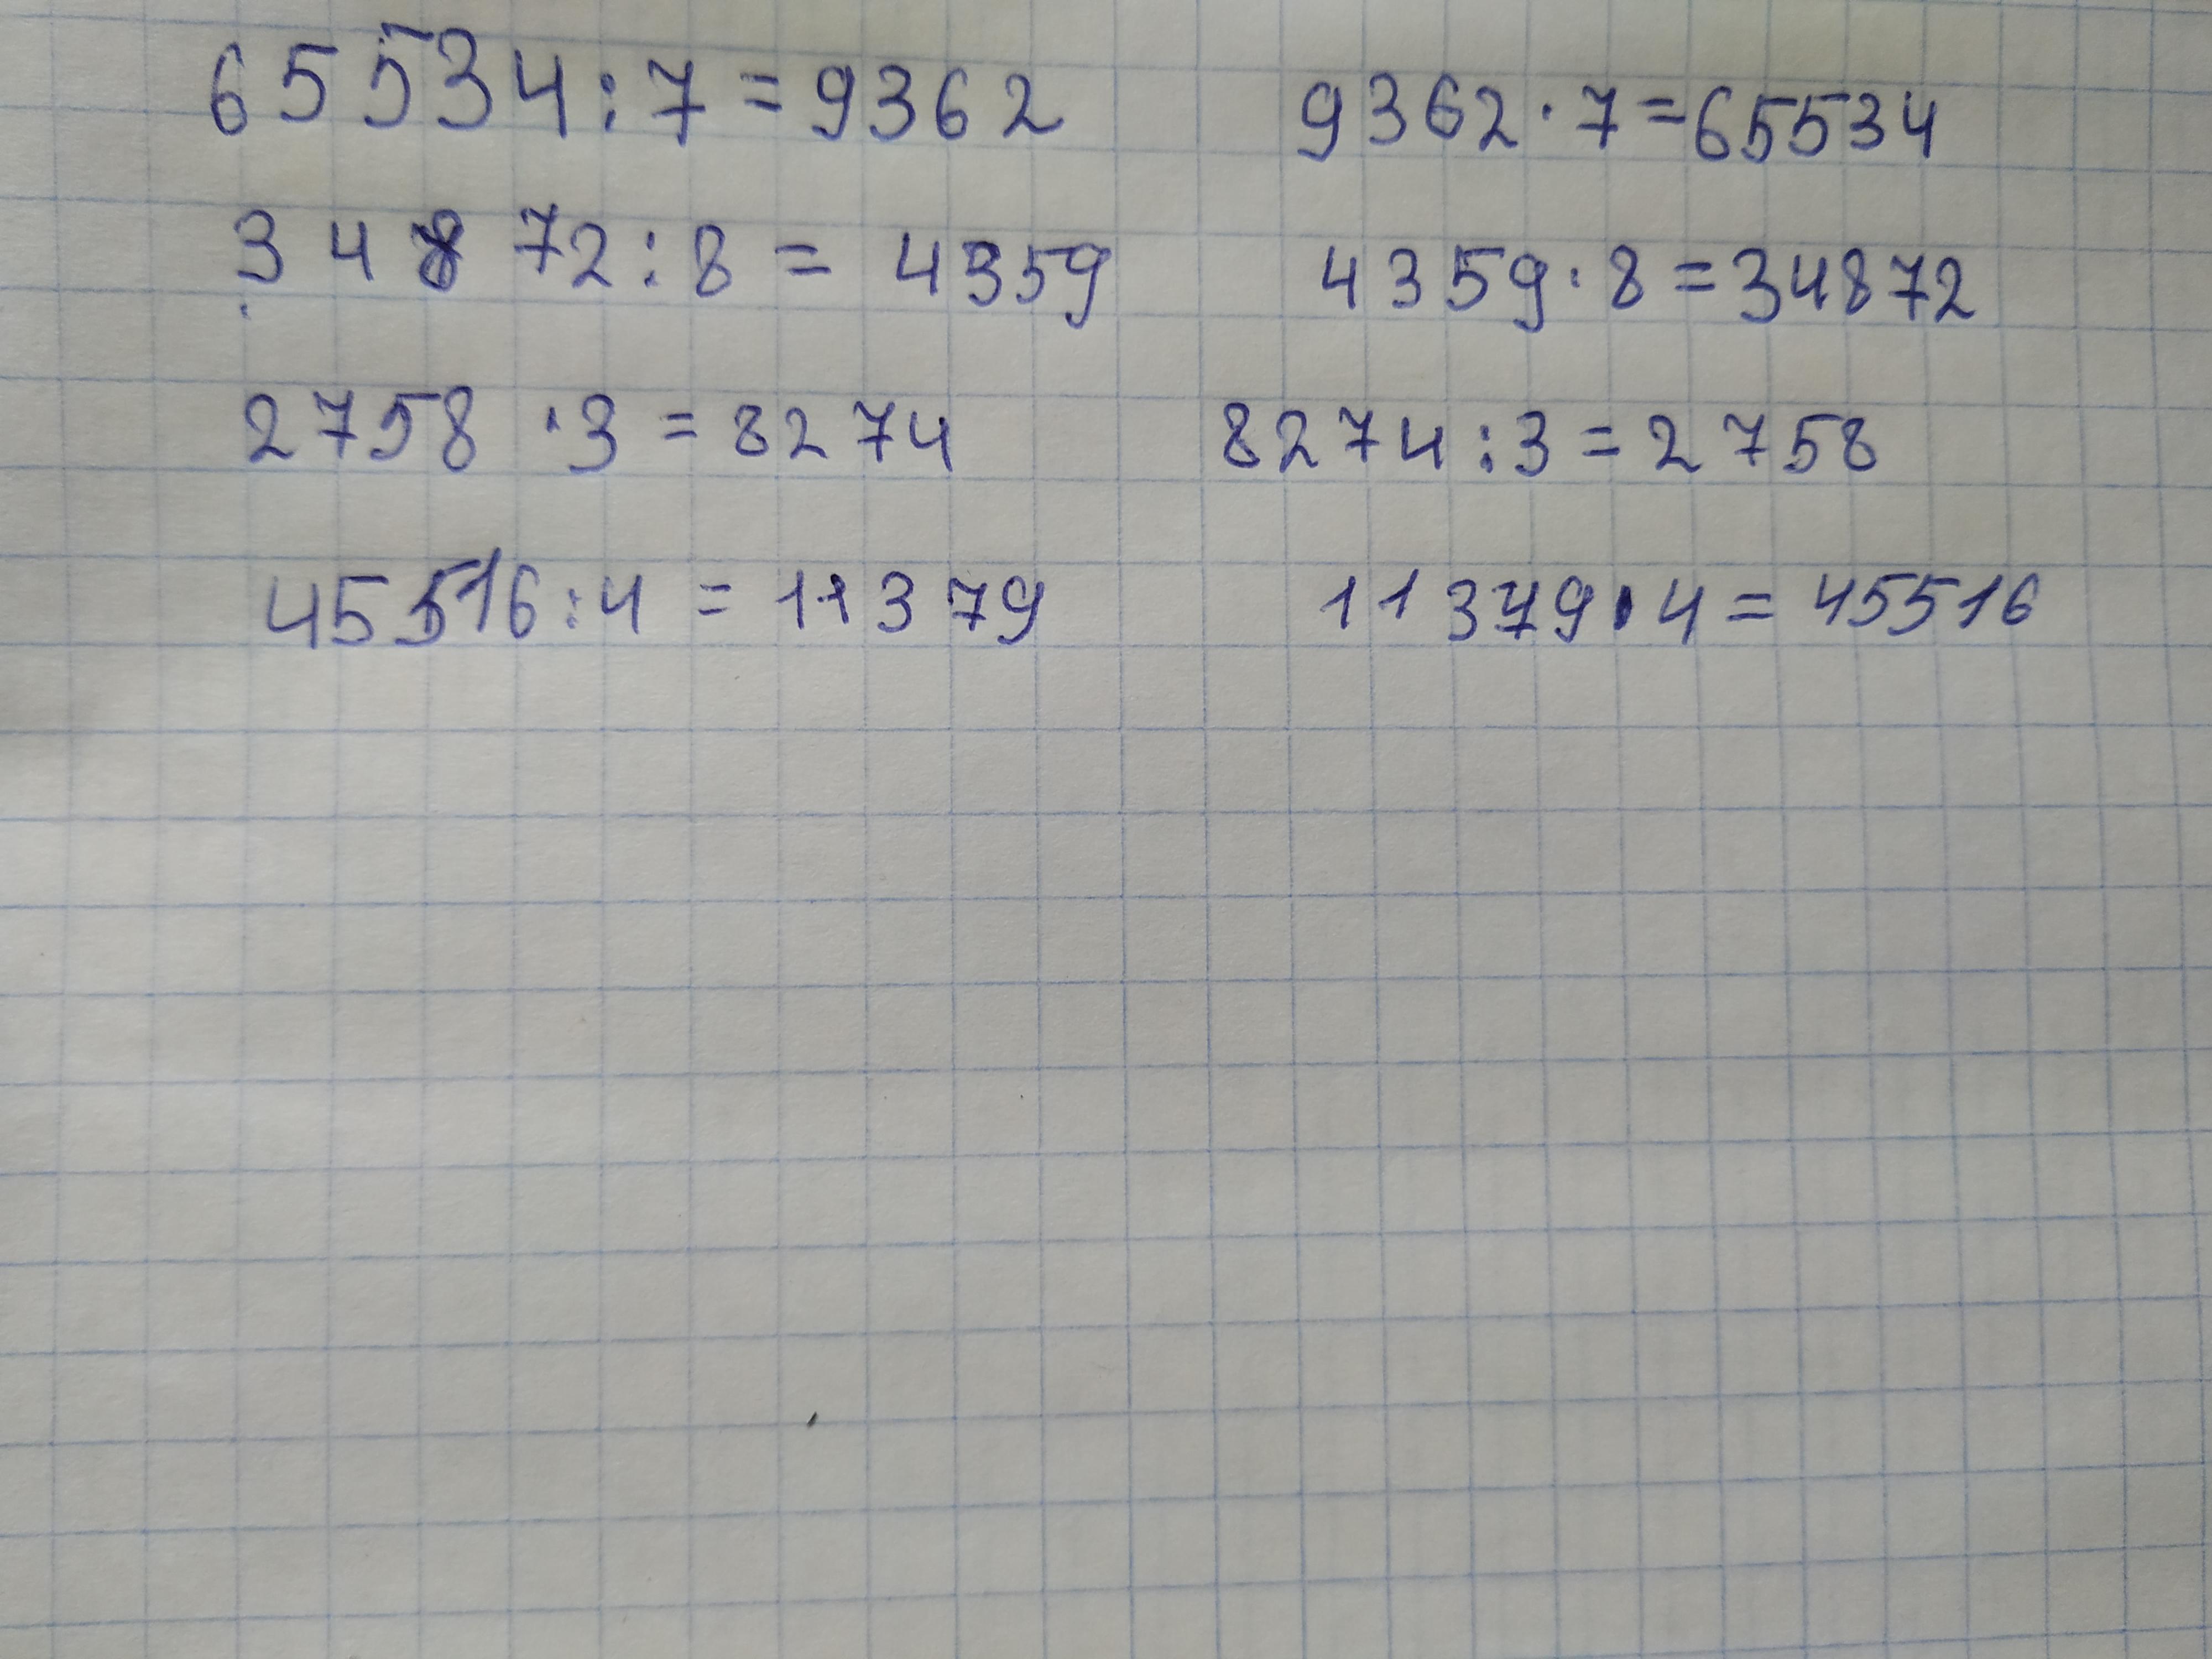 65534:7=9362 9362·7=65534
34872:8=4359 4359·8=34872
2758·3=8274 8274:3=2758
45516:4=11379 11379·4=45516